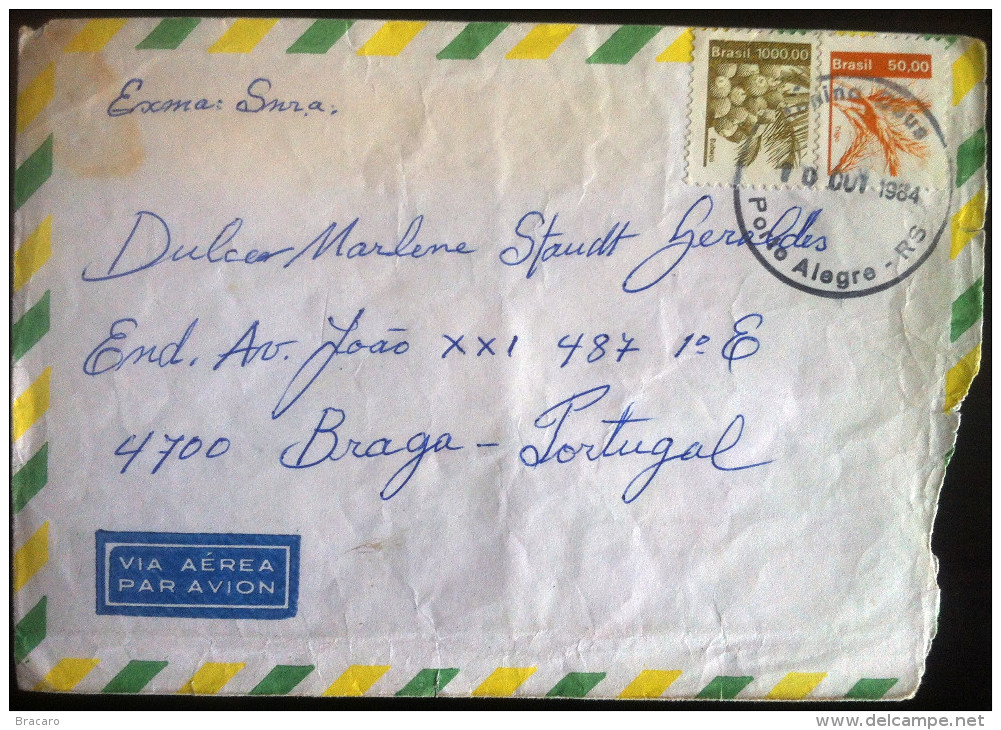 Exma: Snra.
Brasil 1000,00
Babaçu
Brasil 50,00
Trigo
Menino Deus
10 OUT 1984
Porto Alegre - RS
Dulce Marlene Staudt Geraldes
End. Av. João XXI 487 1º E
4700 Braga - Portugal
VIA AÉREA
PAR AVION
Bracaro
delcampe.net